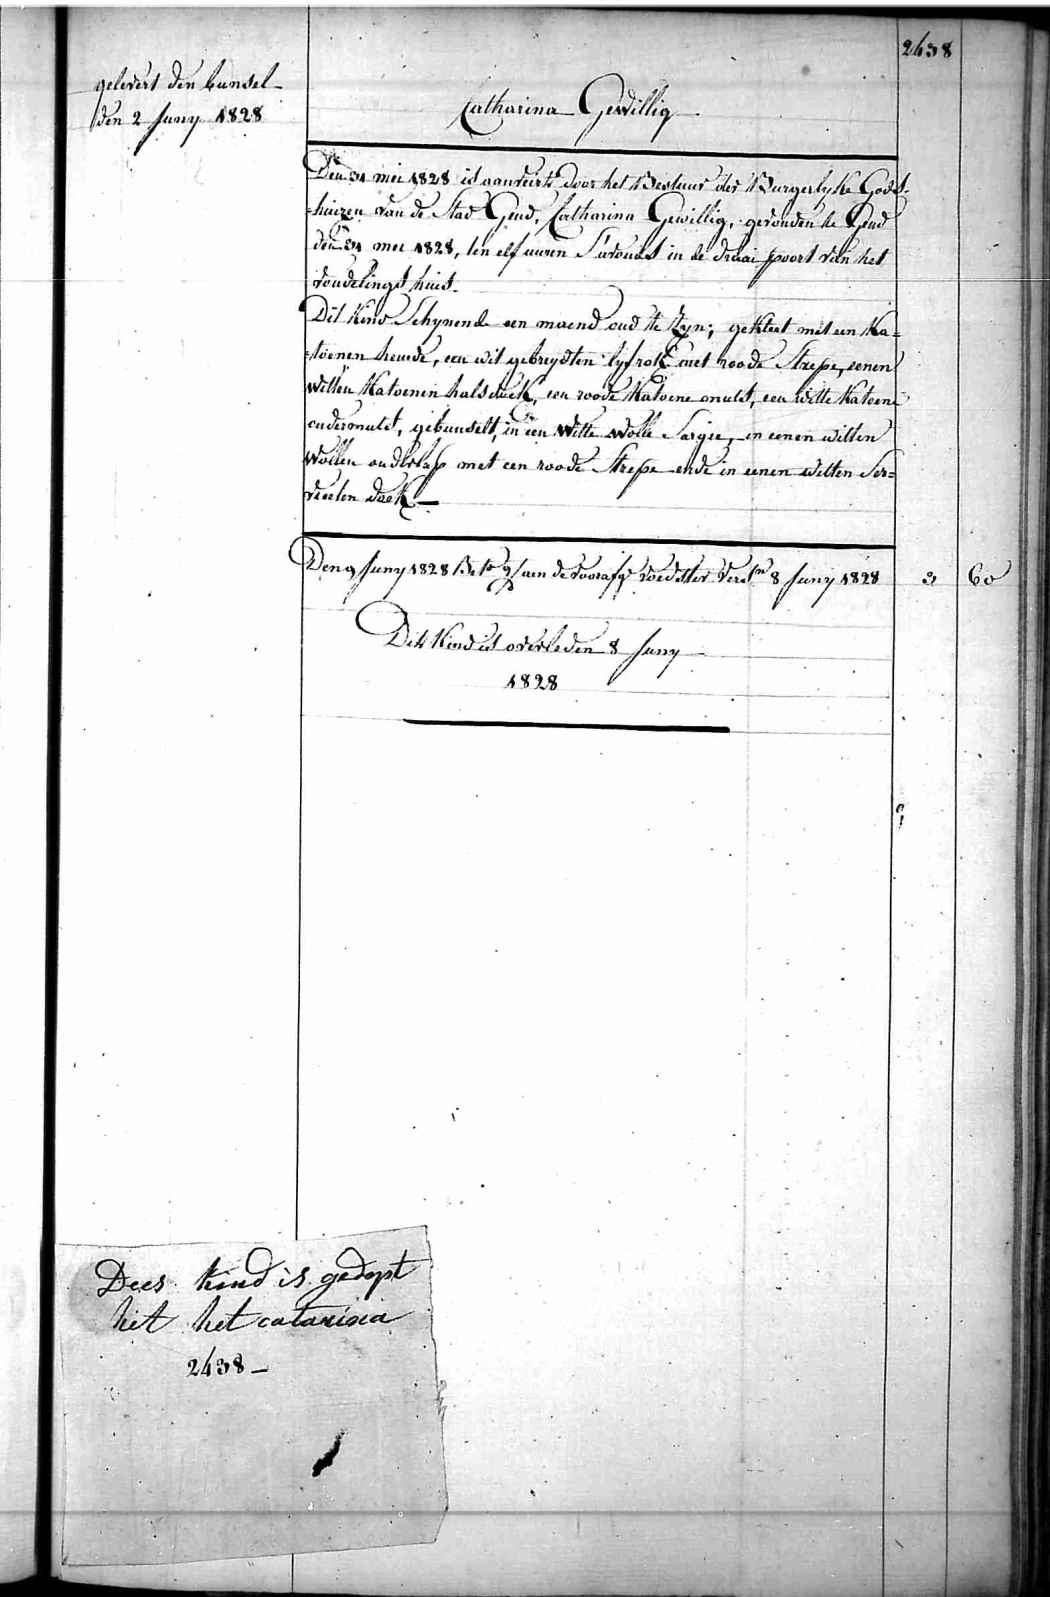 2438
gelevert den bunsel
den 2 Juny 1828
Catharina Gewillig
Den 31 mei 1828 is aanveirt door het Bestuur der Burgerlyke Gods-
=huizen van de Stad Gend, Catharina Gewillig, gevonden te Gend
den 31 mei 1828, ten elf uuren S'avonds in de draai poort van het
vondelings huis.
Dit Kind Schynende een maend oud te Zyn; gekleet met een Ka=
=toenen hemde, een wit gebreydten lyfrok met roode Strepe, eenen
Witten Katoenen halsdoek, een roode Katoene muts, een witte Katoene
ondermuts, gebunselt, in een Witte wolle Sargie, in eenen witten
Wollen met een roode Strepe ende in eenen witten Ser=
vietten doek.
Den 9 Juny 1828 aen de voedster 8 Juny 1828 3 60
Dit Kind is overleden 8 Juny
1828
Dees kind is gedopt
hit het catarina
2438